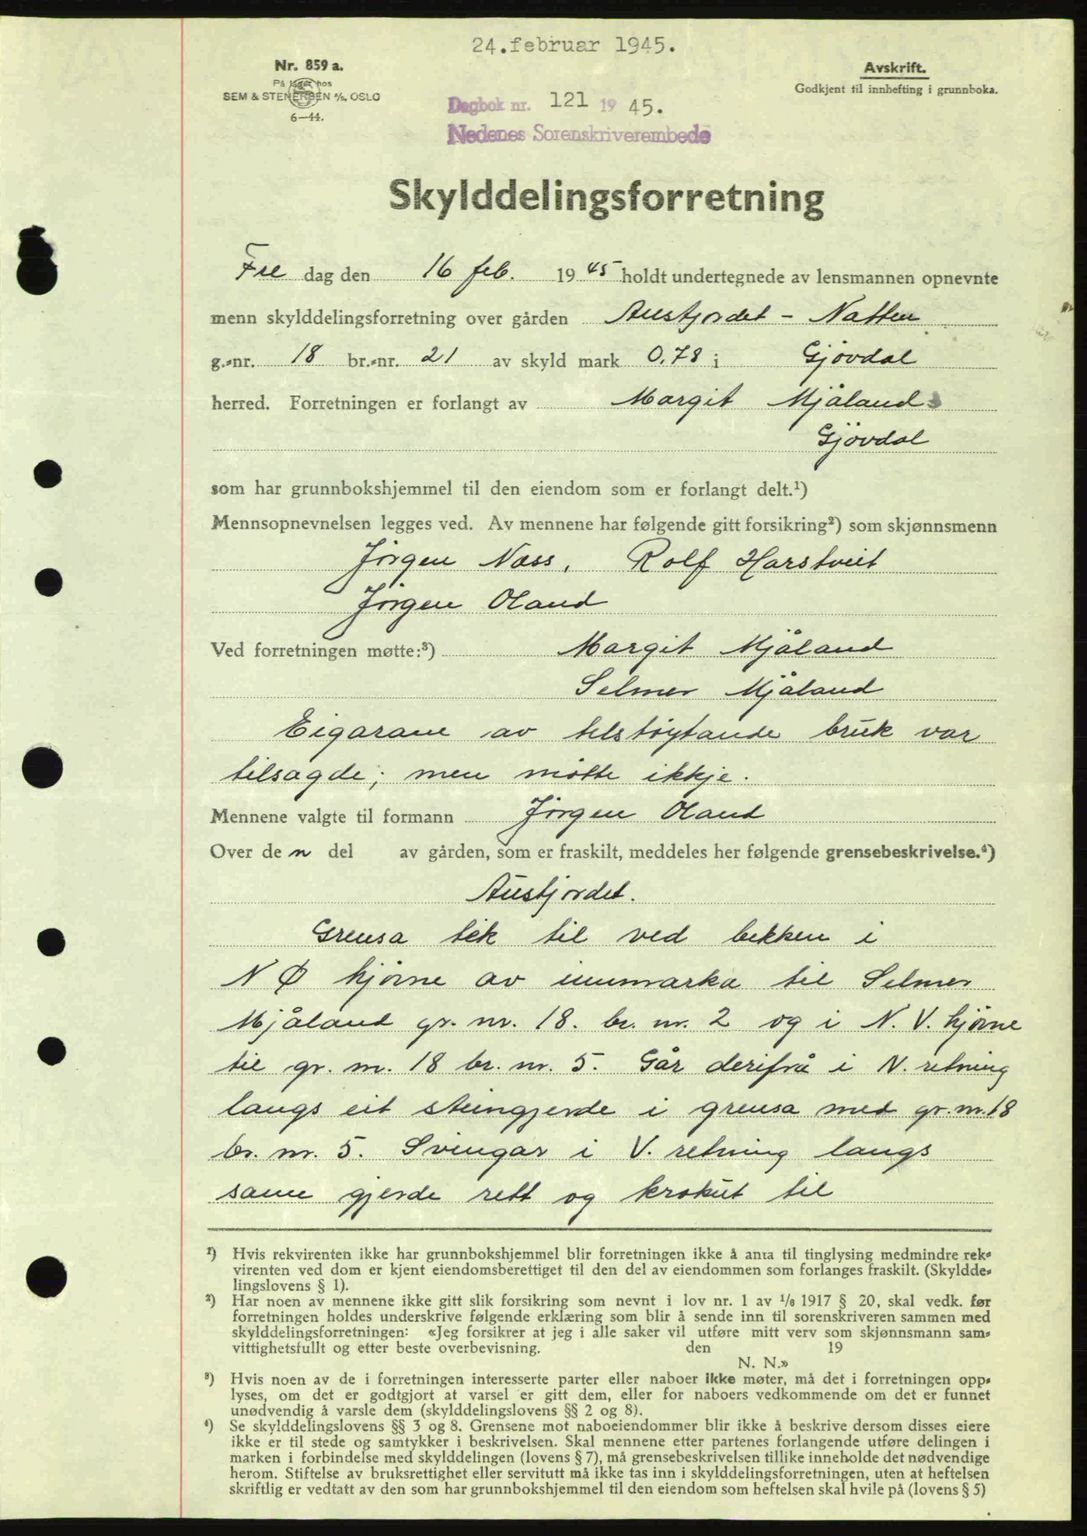 24.februar 1945.
Nr. 859 a.
På lager hos
SEM & STENERSEN A/S, OSLO
6—44.
Avskrift.
Godkjent til innhefting i grunnboka.
Dagbok nr. 121 19 45.
Nedenes Sorenskriverembede
Skylddelingsforretning
Fre dag den 16 feb. 19 45 holdt undertegnede av lensmannen opnevnte
menn skylddelingsforretning over gården Austjordet - Natten
g.-nr. 18 br.-nr. 21 av skyld mark 0,78 i Gjövdal
herred. Forretningen er forlangt av Margit Mjåland
Gjövdal
som har grunnbokshjemmel til den eiendom som er forlangt delt.¹)
Mennsopnevnelsen legges ved. Av mennene har følgende gitt forsikring²) som skjønnsmenn
Jörgen Næss, Rolf Harstveit
Jörgen Oland
Ved forretningen møtte:³) Margit Mjåland
Selmer Mjåland
Eigarane av tilstöytande bruk var
tilsagde; men mötte ikkje.
Mennene valgte til formann Jörgen Oland
Over de n del av gården, som er fraskilt, meddeles her følgende grensebeskrivelse.⁴)
Austjordet.
Grensa tek til ved bekken i
N Ø hjörne av innmarka til Selmer
Mjåland gr. nr. 18. br. nr. 2 og i N. V. hjörne
til gr. nr. 18 br. nr. 5. Går derifrå i N. retning
langs eit steingjerde i grensa med gr. nr. 18
br. nr. 5. Svingar i V. retning langs
same gjerde rett og krokut til
¹) Hvis rekvirenten ikke har grunnbokshjemmel blir forretningen ikke å anta til tinglysing medmindre rek-
virenten ved dom er kjent eiendomsberettiget til den del av eiendommen som forlanges fraskilt. (Skyldde-
lingslovens § 1).
²) Har noen av mennene ikke gitt slik forsikring som nevnt i lov nr. 1 av ¹/₆ 1917 § 20, skal vedk. før
forretningen holdes underskrive følgende erklæring som blir å sende inn til sorenskriveren sammen med
skylddelingsforretningen: «Jeg forsikrer at jeg i alle saker vil utføre mitt verv som skjønnsmann sam-
vittighetsfullt og etter beste overbevisning. den 19
N. N.»
³) Hvis noen av de i forretningen interesserte parter eller naboer ikke møter, må det i forretningen opp-
lyses, om det er godtgjort at varsel er gitt dem, eller for naboers vedkommende om det er funnet
unødvendig å varsle dem (skylddelingslovens §§ 2 og 8).
⁴) Se skylddelingslovens §§ 3 og 8. Grensene mot naboeiendommer blir ikke å beskrive dersom disses eiere
ikke er til stede og samtykker i beskrivelsen. Skal mennene etter partenes forlangende utføre delingen i
marken i forbindelse med skylddelingen (lovens § 7), må grensebeskrivelsen tillike inneholde det nødvendige
herom. Stiftelse av bruksrettighet eller servitutt må ikke tas inn i skylddelingsforretningen, uten at heftelsen
skriftlig er vedtatt av den som har grunnbokshjemmel til den eiendom som heftelsen skal hvile på (lovens § 5)